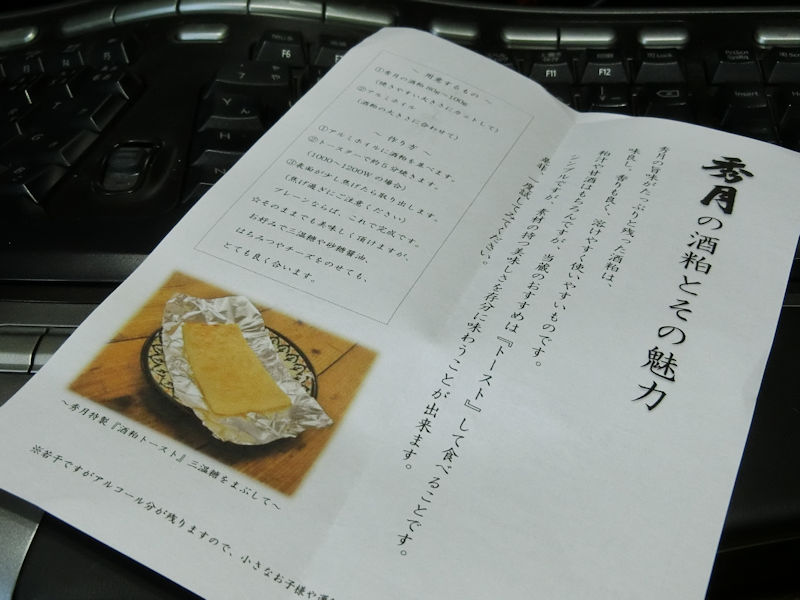 秀月の酒粕とその魅力
秀月の旨味がたっぷりと残った酒粕は、
味良し、香りも良く、溶けやすく使いやすいものです。
粕汁や甘酒はもちろんですが、当蔵のおすすめは『トースト』して食べることです。
シンプルですが、素材の持つ美味しさを存分に味わうことが出来ます。
是非、一度試してみてください。
～ 用意するもの ～
①秀月の酒粕 80g～100g
(焼きやすい大きさにカットして)
②アルミホイル
(酒粕の大きさに合わせて)
～ 作り方 ～
①アルミホイルに酒粕を並べます。
②トースターで約5分焼きます。
(1000～1200Wの場合)
③表面が少し焦げたら取り出します。
(焦げ過ぎにご注意ください)
プレーンならば、これで完成です。
☆そのままでも美味しく頂けますが、
お好みで三温糖や砂糖醤油、
はちみつやチーズをのせても、
とても良く合います。
～秀月特製『酒粕トースト』三温糖をまぶして～
※若干ですがアルコール分が残りますので、小さなお子様や運
F6
F11
F12